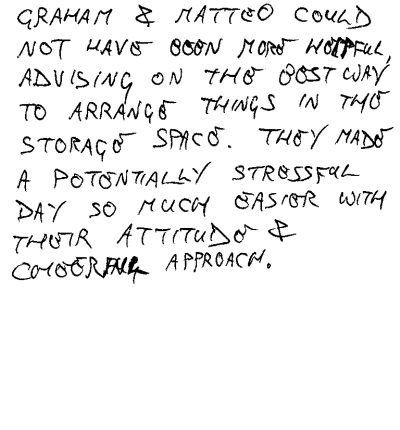 GRAHAM & MATTEO COULD
NOT HAVE BEEN MORE HELPFUL,
ADVISING ON THE BEST WAY
TO ARRANGE THINGS IN THE
STORAGE SPACE. THEY MADE
A POTENTIALLY STRESSFUL
DAY SO MUCH EASIER WITH
THEIR ATTITUDE &
CHEERFUL APPROACH.